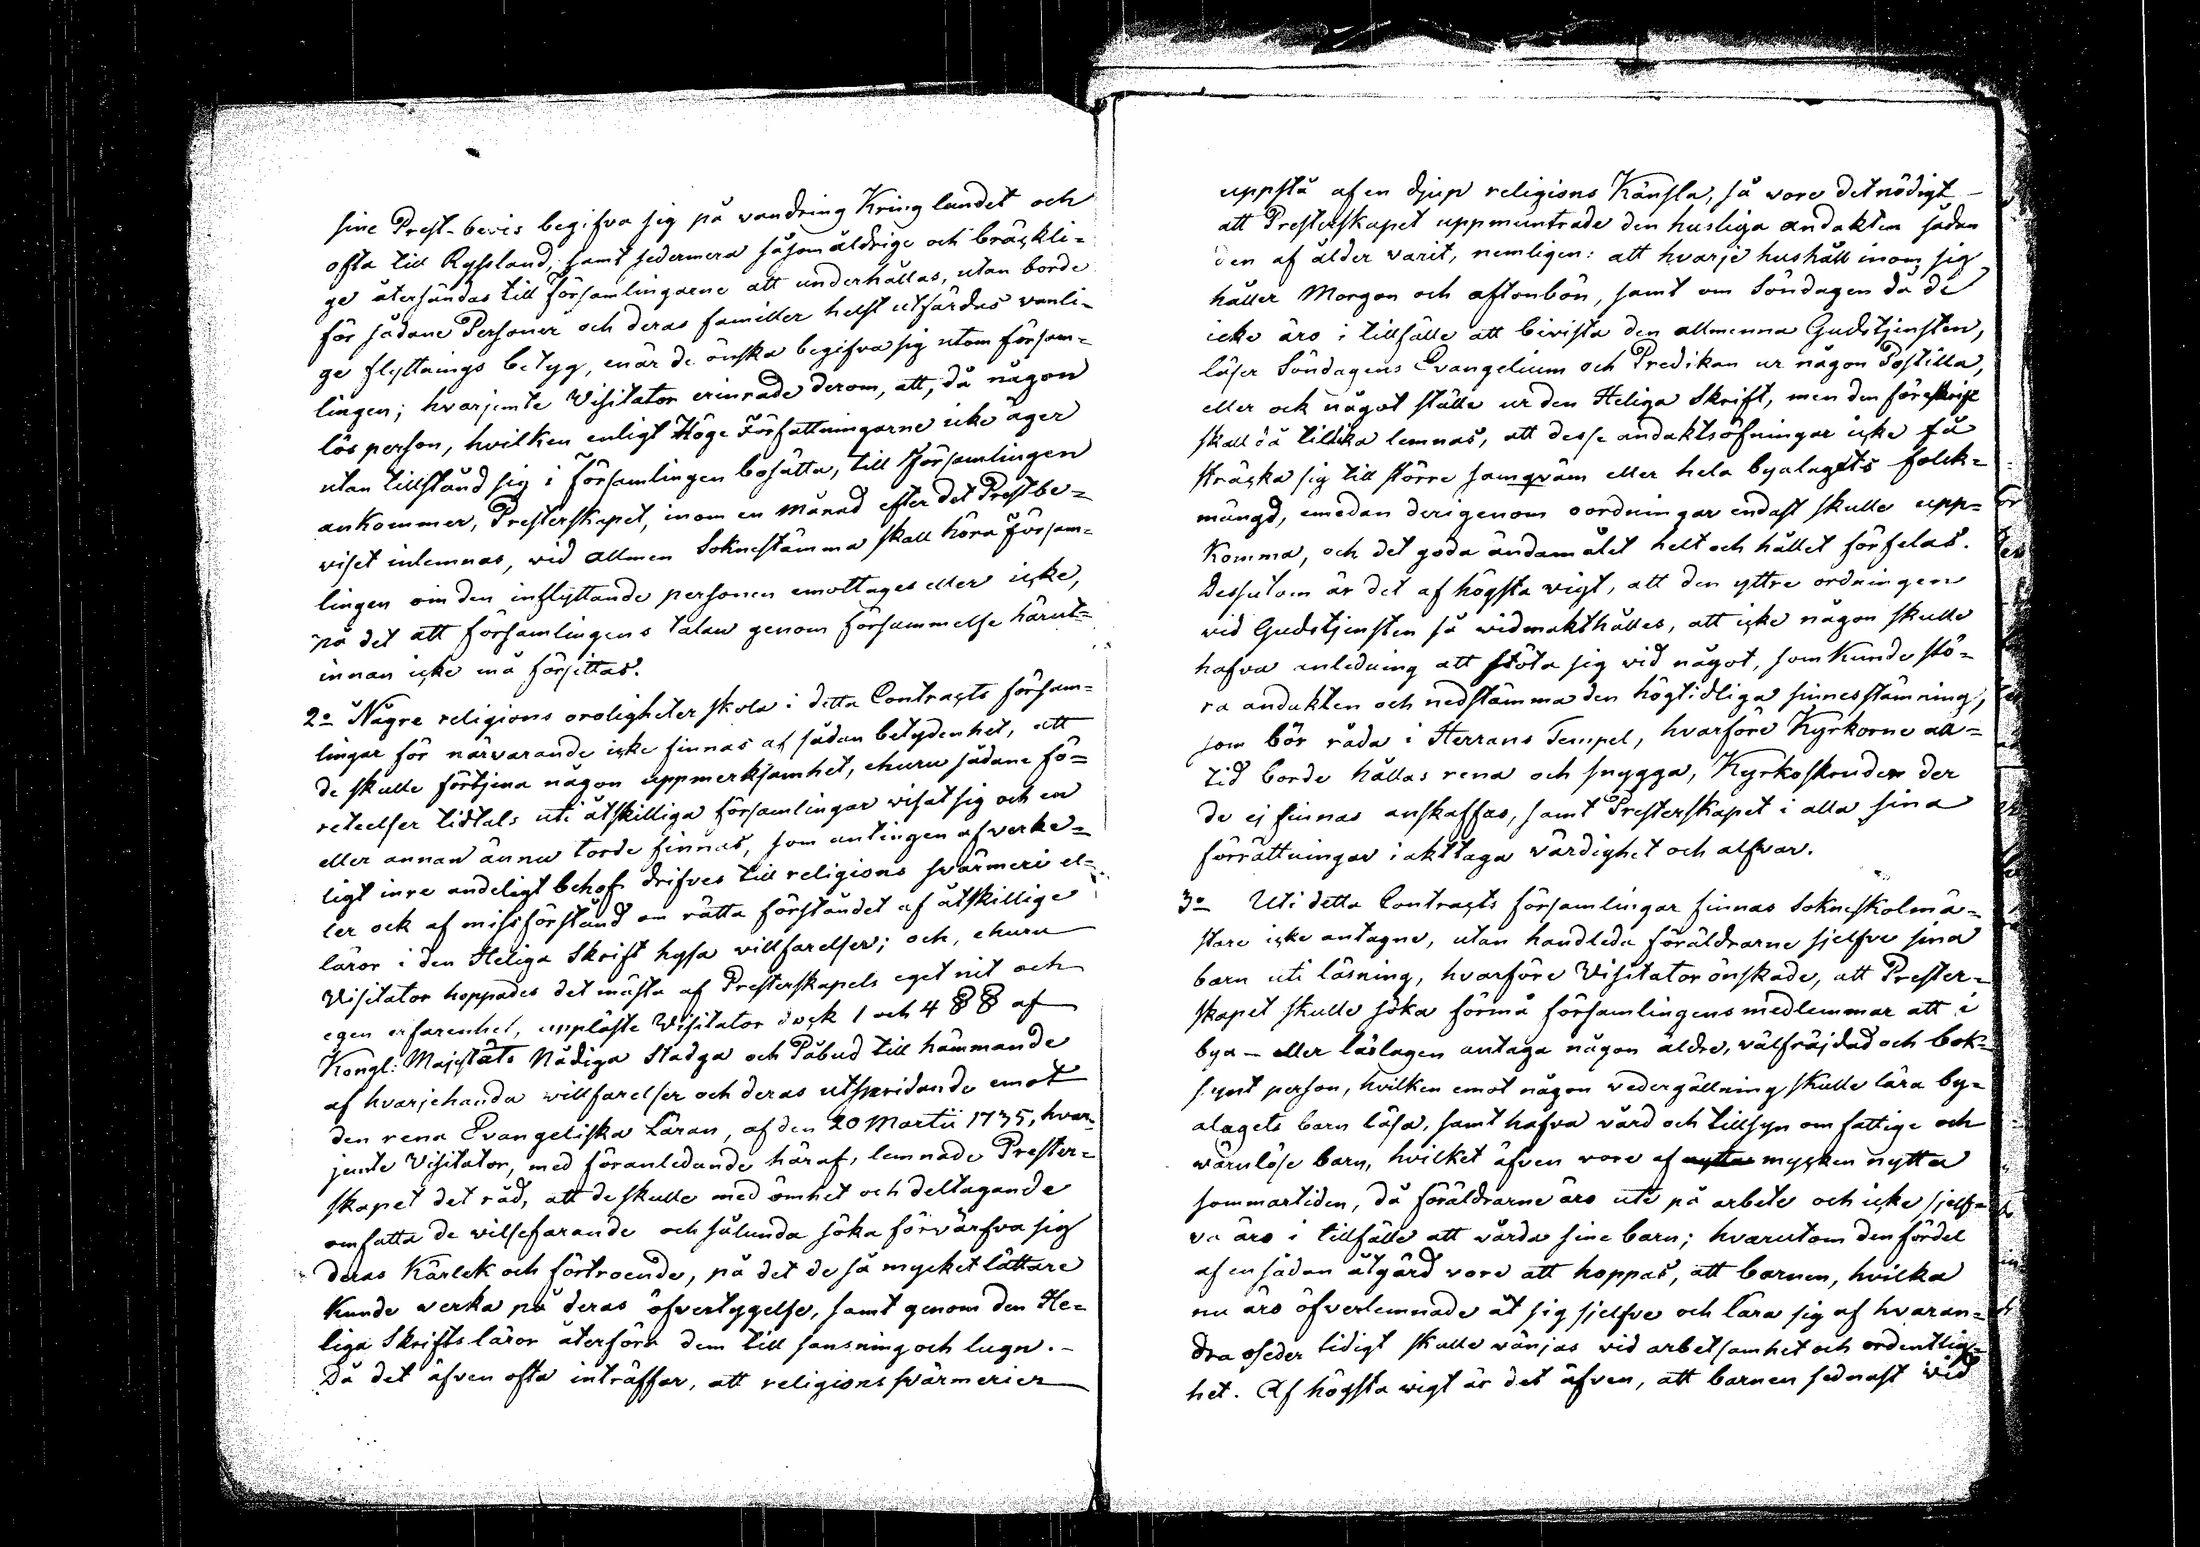 sine Prest-bevis begifva sig på vandring Kring landet och
ofta till Ryssland, samt sedermera såsom äldrige och bräckli=
ge återsändas till Församlingarne att underhållas, utan borde
för sådane Personer och deras familler helst utfärdas vanli=
ge flyttnings betyg, enär de önska begifva sig utom försam=
lingen; hvarjemte Visitator erinrade derom, att, då någon
lös person, hvilken enligt Höge Författningarne icke äger
utan tillstånd sig i Församlingen bosätta, till Församlingen
ankommer, Presterskapet, inom en månad efter det Prestbe=
viset inlemnas, vid allmen Soknestämma skall höra Försam=
lingen om den inflyttande personen emottages eller icke,
på det att församlingens talan genom försummelse härut=
innan icke må försittas.
2o Någre religions oroligheter skola i detta Contracts försam=
lingar för närvarande icke finnas af sådan betydenhet, att
de skulle förtjena någon uppmerksamhet, ehuru sådane fö=
reteelser tidtals uti åtskilliga församlingar visat sig och en
eller annan ännu torde finnas, som antingen af verke=
ligt inre andeligt behof drifves till religions svärmeri el=
ler ock af missförstånd om rätta förståndet af åtskillige
läror i den Heliga Skrift hysa villfarelser; och, ehuru
Visitator hoppades det mästa af Presterskapets eget nit och
egen erfarenhet, uppläste Visitator dock 1 och 4 §§ af
Kongl: Majestäts Nådiga Stadga och Påbud till hämmande
af hvarjehanda willfarelser och deras utspridande emot
den rena Evangeliska Läran, af den 20 Martii 1735, hvar=
jemte Visitator, med föranledande häraf, lemnade Prester=
skapet det råd, att de skulle med ömhet och deltagande
omfatta de vilsefarande och sålunda söka förvärfva sig
deras Kärlek och förtroende, på det de så mycket lättare
Kunde verka på deras öfvertygelse, samt genom den He=
liga Skrifts läror återföra dem till sansning och lugn. -
Då det äfven ofta inträffar, att religions svärmerier
uppstå af en djup religions Känsla, så vore det nödigt
att Presterskapet uppmuntrade den husliga andakten sådan
den af ålder varit, nemligen: att hvarje hushåll inom sig
håller Morgon och aftonbön, samt om Söndagen då de
icke äro i tillfälle att bivista den allmenna Gudstjensten,
läser Söndagens Evangelium och Predikan ur någon Postilla,
eller ock något ställe ur den Heliga Skrift, men den föreskrift
skall då tillika lemnas, att desse andaktsöfningar icke få
sträcka sig till större samqväm eller hela byalagets folck=
mängd, emedan derigenom oordningar endast skulle upp=
Komma, och det goda ändamålet helt och hållet förfelas.
Dessutom är det af högsta vigt, att den yttre ordningen
vid Gudstjensten så widmakthålles, att icke någon skulle
hafva anledning att stöta sig vid något, som Kunde stö=
ra andakten och nedstämma den högtidliga sinnesstämning,
som bör råda i Herrans Tempel, hvarföre Kyrkorne all=
tid borde hållas rena och snygga, Kyrkoskruden der
de ej finnas anskaffas, samt Presterskapet i alla sina
förrättningar iakttaga värdighet och alfvar.
3o Uti detta Contracts församlingar finnas Sokneskolmä=
stare icke antagne, utan handleda föräldrarne sjelfve sina
barn uti läsning, hvarföre Visitator önskade, att Prester=
skapet skulle söka förmå församlingens medlemmar att i
bya - eller läslagen antaga någon äldre, välfräjdad och bok=
synt person, hvilken emot någon vedergällning skulle lära by=
alagets barn läsa, samt hafva vård och tillsyn om fattige och
wärnlöse barn, hvilket äfven vore af nytta mycken nytta
sommartiden, då föräldrarne äro ute på arbete och icke sjelf=
va äro i tillfälle att vårda sine barn; hvarutom den fördel
af en sådan åtgärd vore att hoppas, att barnen, hvilka
nu äro öfverlemnade åt sig sjelfve och lära sig af hvaran=
dra oseder tidigt skulle vänjas vid arbetsamhet och ordentlig=
het. Af högsta vigt är det äfven, att barnen sednast vid